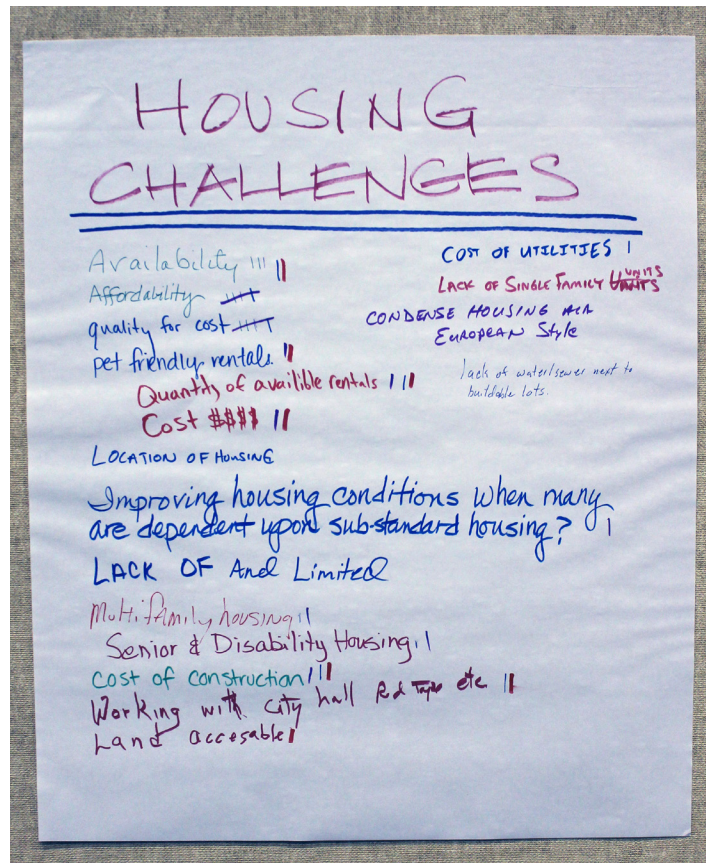 HOUSING
CHALLENGES
Availability
Affordability
quality for cost
pet friendly rentals
Quantity of availible rentals
Cost $$$$
LOCATION OF HOUSING
Improving housing conditions when many
are dependent upon sub-standard housing?
LACK OF And Limited
Multi family housing
Senior & Disability Housing
Cost of construction
Working with city hall Red Tape etc
Land accesable
COST OF UTILITIES
LACK OF SINGLE FAMILY UNITS
CONDENSE HOUSING
EUROPEAN Style
lack of water/sewer next to
buildable lots.